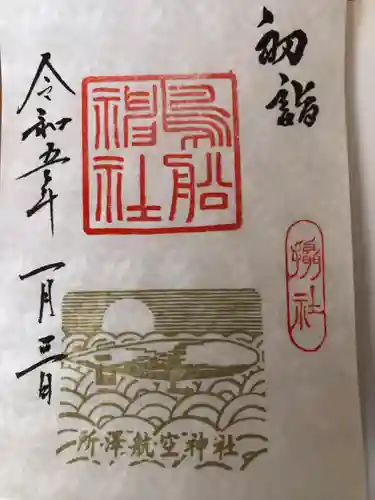 初詣
鳥船
神社
摂社
令和五年 一月三日
所澤航空神社